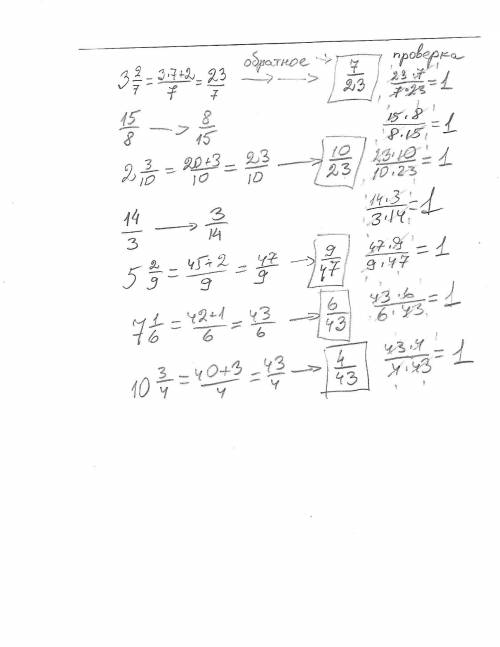 обратное проверка
3 2/7 = 3·7+2/7 = 23/7 → → 7/23 23·7/7·23 = 1
15/8 → 8/15 15·8/8·15 = 1
2 3/10 = 20+3/10 = 23/10 → 10/23 23·10/10·23 = 1
14/3 → 3/14 14·3/3·14 = 1
5 2/9 = 45+2/9 = 47/9 → 9/47 47·9/9·47 = 1
7 1/6 = 42+1/6 = 43/6 → 6/43 43·6/6·43 = 1
10 3/4 = 40+3/4 = 43/4 → 4/43 43·4/4·43 = 1